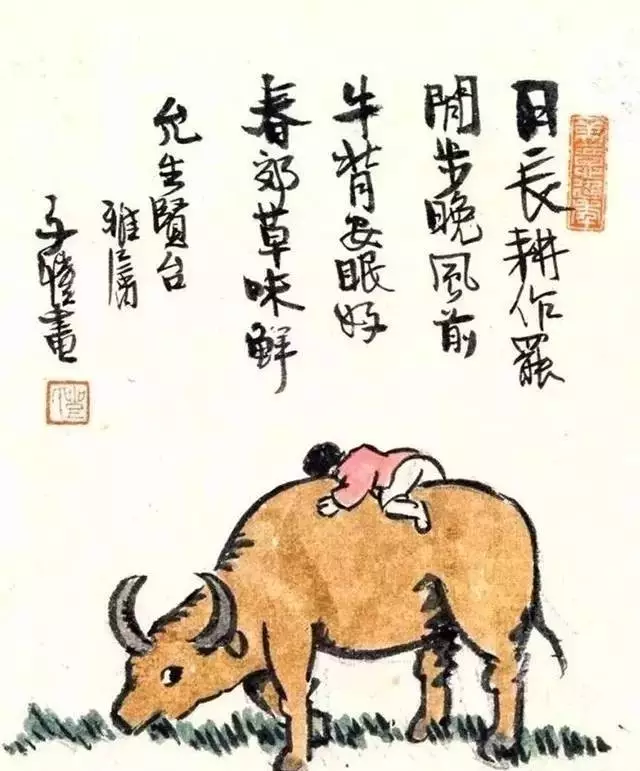 日長耕作罷
閒步晚風前
牛背安眠好
春郊草味鮮
允生賢台
雅屬
子愷畫